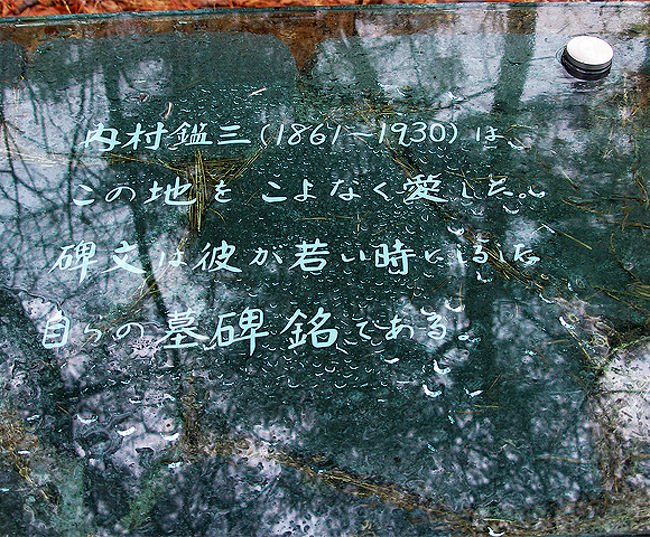 内村鑑三(1861〜1930)は、
この地をこよなく愛した。
碑文は彼が若い時にしるした
自らの墓碑銘である。